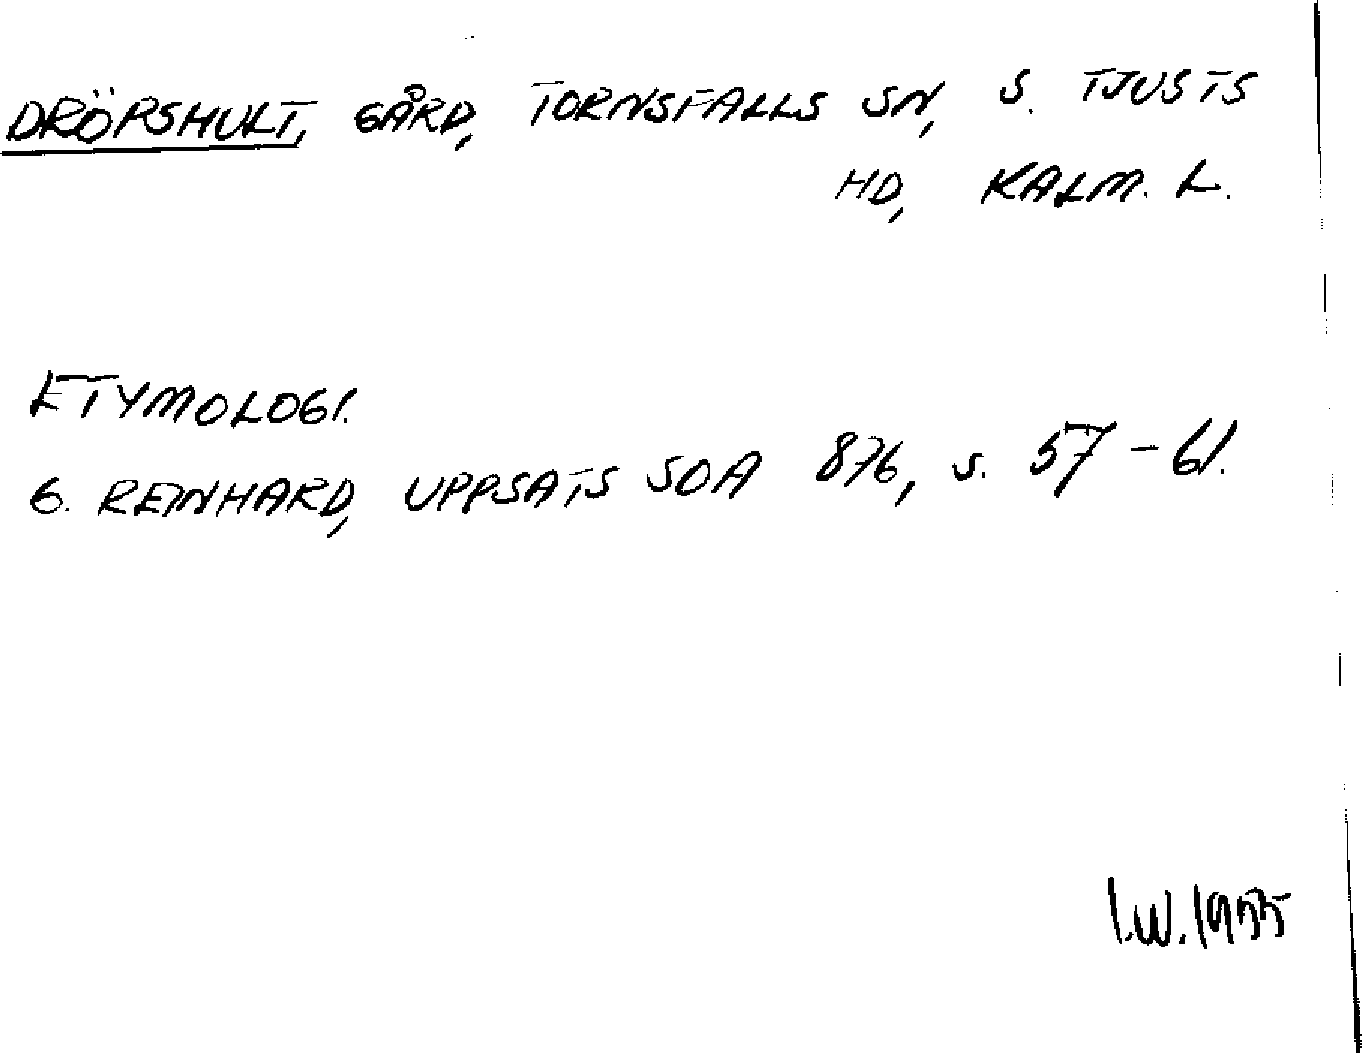 DRÖPSHULT, GÅRD, TORNSFALLS SN, S. TJUSTS
HD, KALM. L.
ETYMOLOGI.
G. REINHARD, UPPSATS SOA 876, s. 57-61.
I.W. 1955